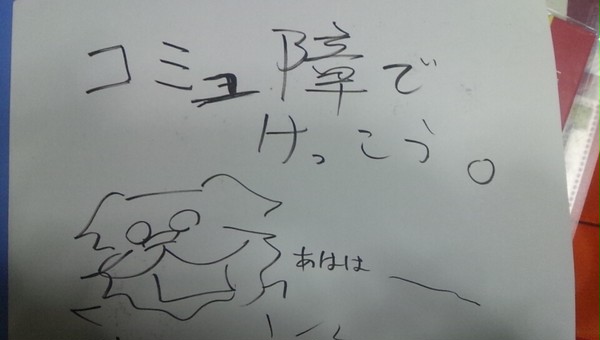 コミュ障で
けっこう。
あはは